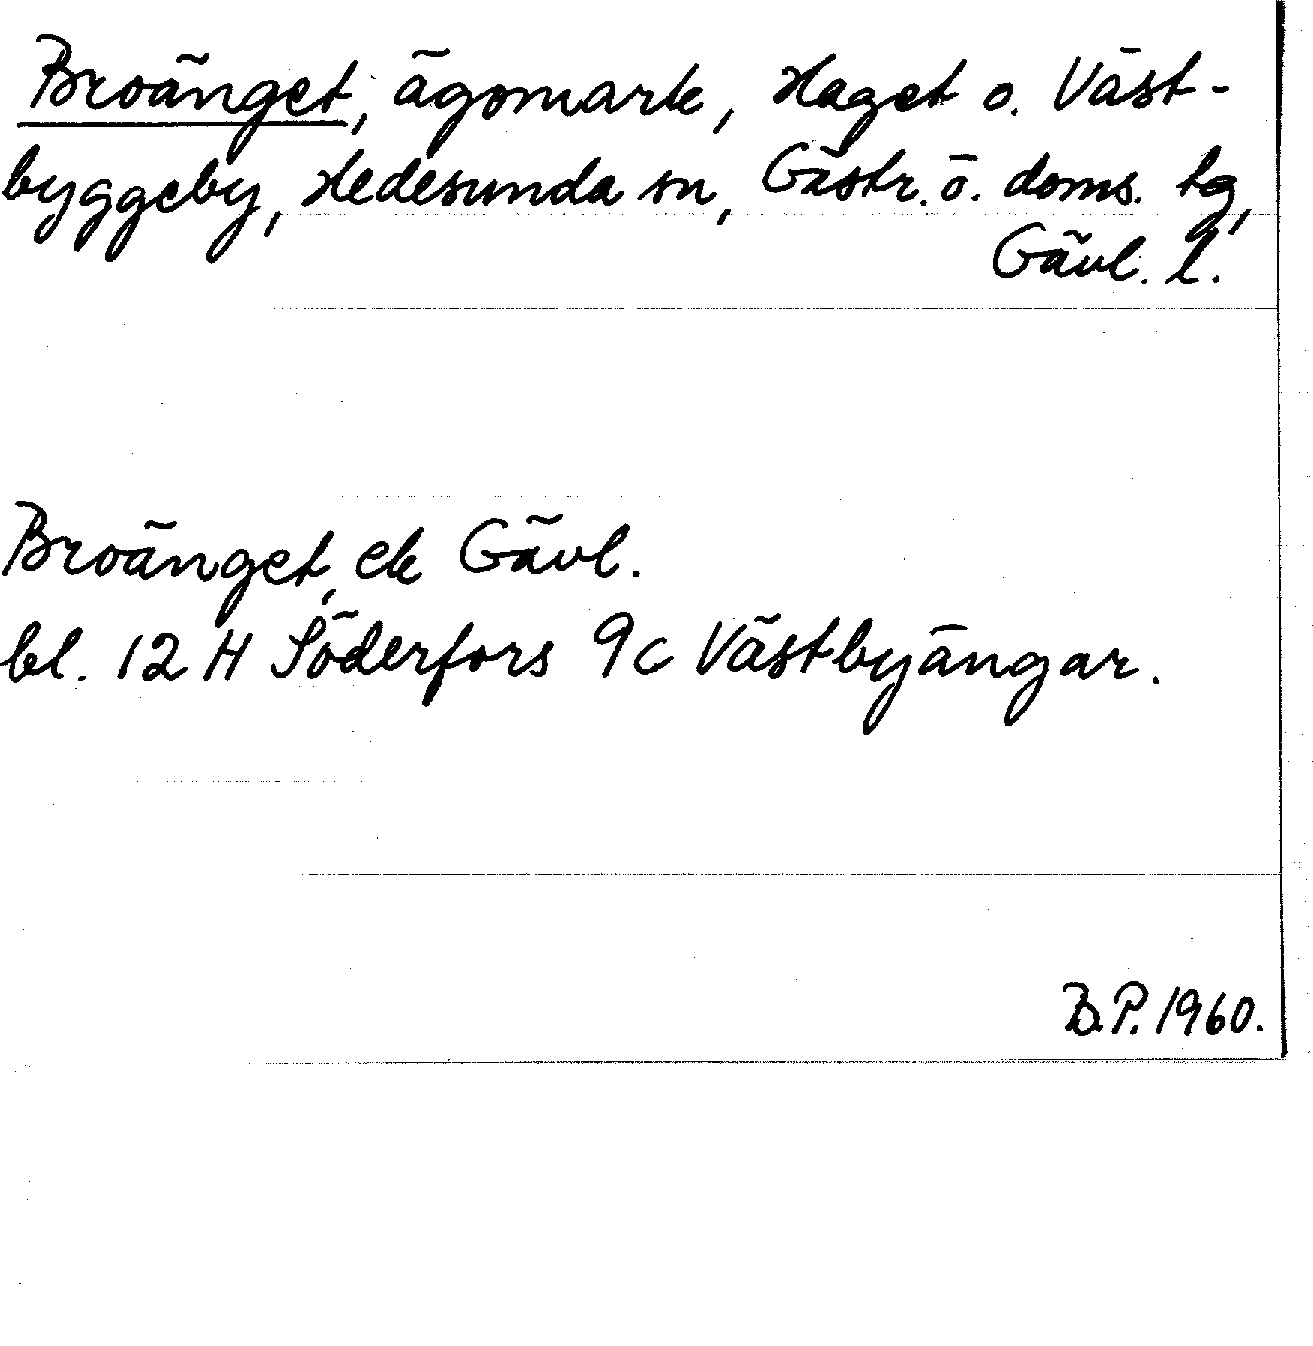 Broänget, ägomark, Haget o. Väst-
byggeby, Hedesunda sn, Gästr. ö. doms. tg,
Gävl. l.
Broänget, ek Gävl.
bl. 12 H Söderfors 9c Västbyängar.
B.P. 1960.